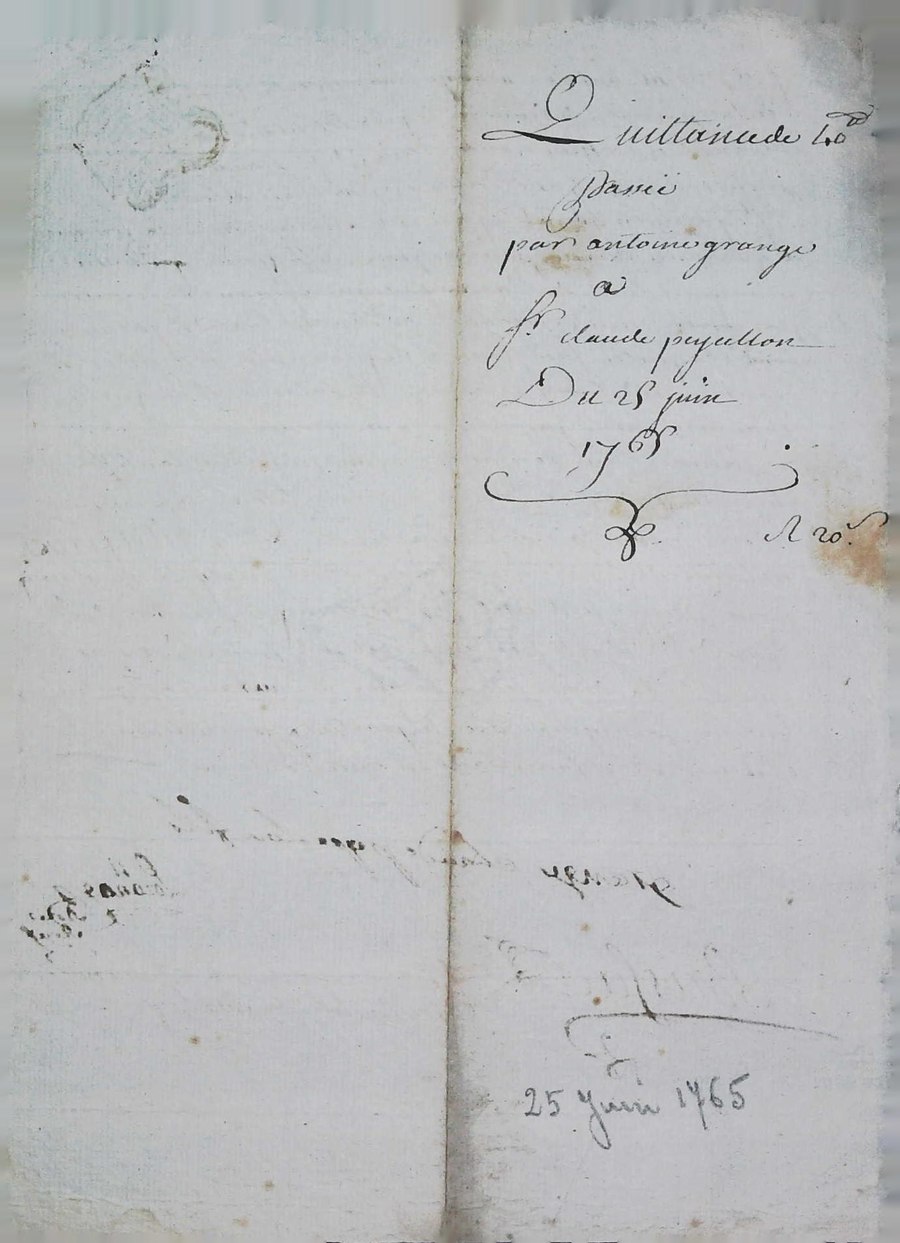 Quittance de 40
passé
par antoine grange
a
Sr. claude peyellon
Du 25 juin
1765
R 20s.
grange
25 Juin 1765